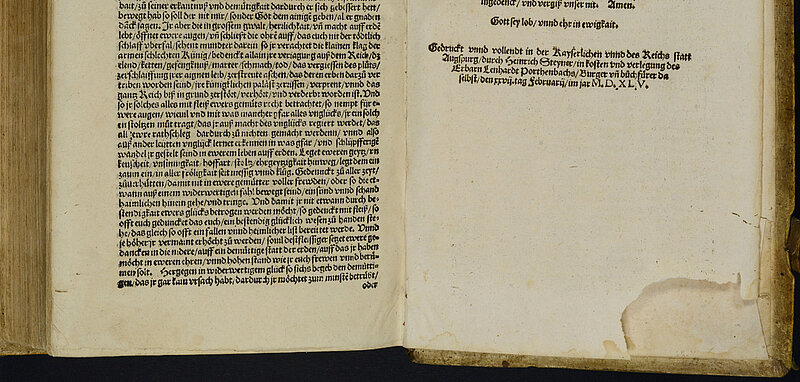 hait/ zu seiner erkantnuß vnd demütigkait dardurch er sich gebessert hett/
bewegt hab so soll der nit mir/ sonder Got dem ainigē geben/ al er gnaden
dāck sagen. Jr aber die in grossem gwalt/ herzlichkait/ vñ macht auff erdē
lebt/ öffnet ewere augen/ vñ schließt die ohrē auff/ das euch nit der tödtlich
schlaff vberfal/ scheint munder darein so jr verachtet die klainen klag der
armen schlechten Künig/ bedenckt allain jr veriagung auß dem Reich/ dz
elend/ ketten/ gefengknuß/ marter/ schmach/ tod/ das vergiessen des plůts/
zerschlaiffung jrer aignen leib/ zerstreute aschen/ das deren erben darzů ver
triben worden seind/ jre künigklichen paläst zerrissen/ verprent/ vnnd das
gantz Reich biß in grund zerstört/ verhört/ vnd verderbt worden ist. Und
so jr solches alles mit fleiß ewers gemüts recht betrachtet/ so nempt für e-
were augen/ wieuil vnd mit was mancher gfar alles vnglücks/ jr ein solch
en stoltzen můt tragt/ das jr auß macht des vnglücks regiert werdet/ das
all ewre rathschleg dardurch zů nichten gemacht werdenn/ vnnd also
auß ander leütten vnglück lernet erkennen in was gfar/ vnd schlüpfferige
wandel jr gestelt seind in ewerem leben auff erden. Leget eweren geytz/ vn
keuscheit/ vnsinnigkait/ hoffart/ stoltz/ ehrgeytzigkait hinweg/ legt dem ein
zaum ein/ in aller fröligkait seit messig vnnd klůg. Gedenckt zů aller zeyt/
zůuerhütten/ damit nit in ewere gemüter voller frewden/ oder so die et-
wann auß einem widerwertigen fahl bewegt seind/ ein sünd vnnd schand
haimlichen hinein gehe/ vnd tringe. Vnd damit jr nit etwann durch be-
stendigkait ewers glücks betrogen werden möcht/ so gedenckt mit fleiß/ so
offt euch geduncket das euch/ ein bestendig glücklich wesen zů handen ste-
he/ das gleich so offt ein fallen vnnd heimlicher list bereitet werde. Vnnd
je höher jr vermaint erhöcht zů werden/ souil destfleissiger setzet ewere ge-
dancken in die nidere/ auff ein demütige statt der erden/ auff das jr haben
möcht in eweren ehren/ vnnd hohen stand wie jr euch frewen vnnd berü-
men solt. Hergegen in widerwertigem glück so sichs begeb den demüti-
gen/ das jr gar kain vrsach habt/ dardurch jr möchtet zum minstē betrübt/
oder
ingedenck/ vnd vergiß vnser nit. Amen.
Gott sey lob/ vnnd ehr in ewigkeit.
Gedruckt vnnd vollendt in der Kayserlichen vnnd des Reichs statt
Augspurg/ durch Heinrich Steyner/ in kosten vñ verlegung des
Erbarn Leonhardt Portenbachs/ Burger vñ bůchfürer da
selbst/ den xxvij. tag Februarij/ im jar M. D. XLV.